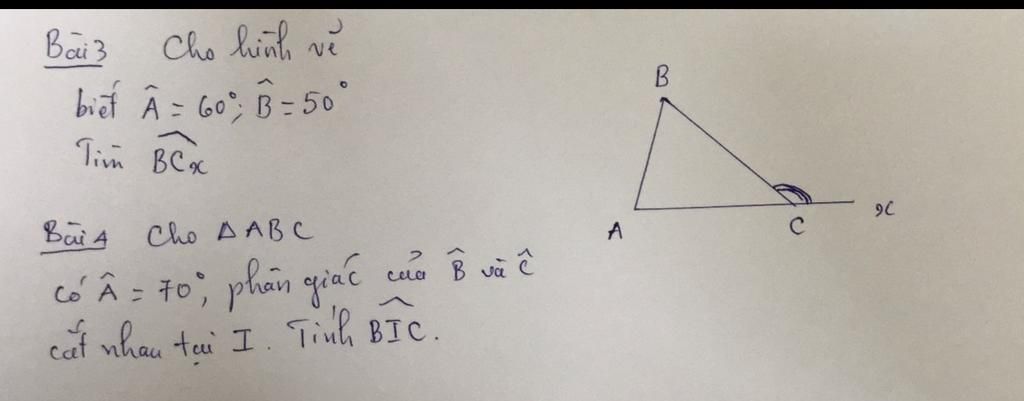 Bài 3 Cho hình vẽ
biết Â = 60°; B̂ = 50°
Tìm B̂Cx
B
A
C
x
Bài 4 Cho △ABC
có Â = 70°, phân giác của B̂ và Ĉ
cắt nhau tại I. Tính B̂IC.